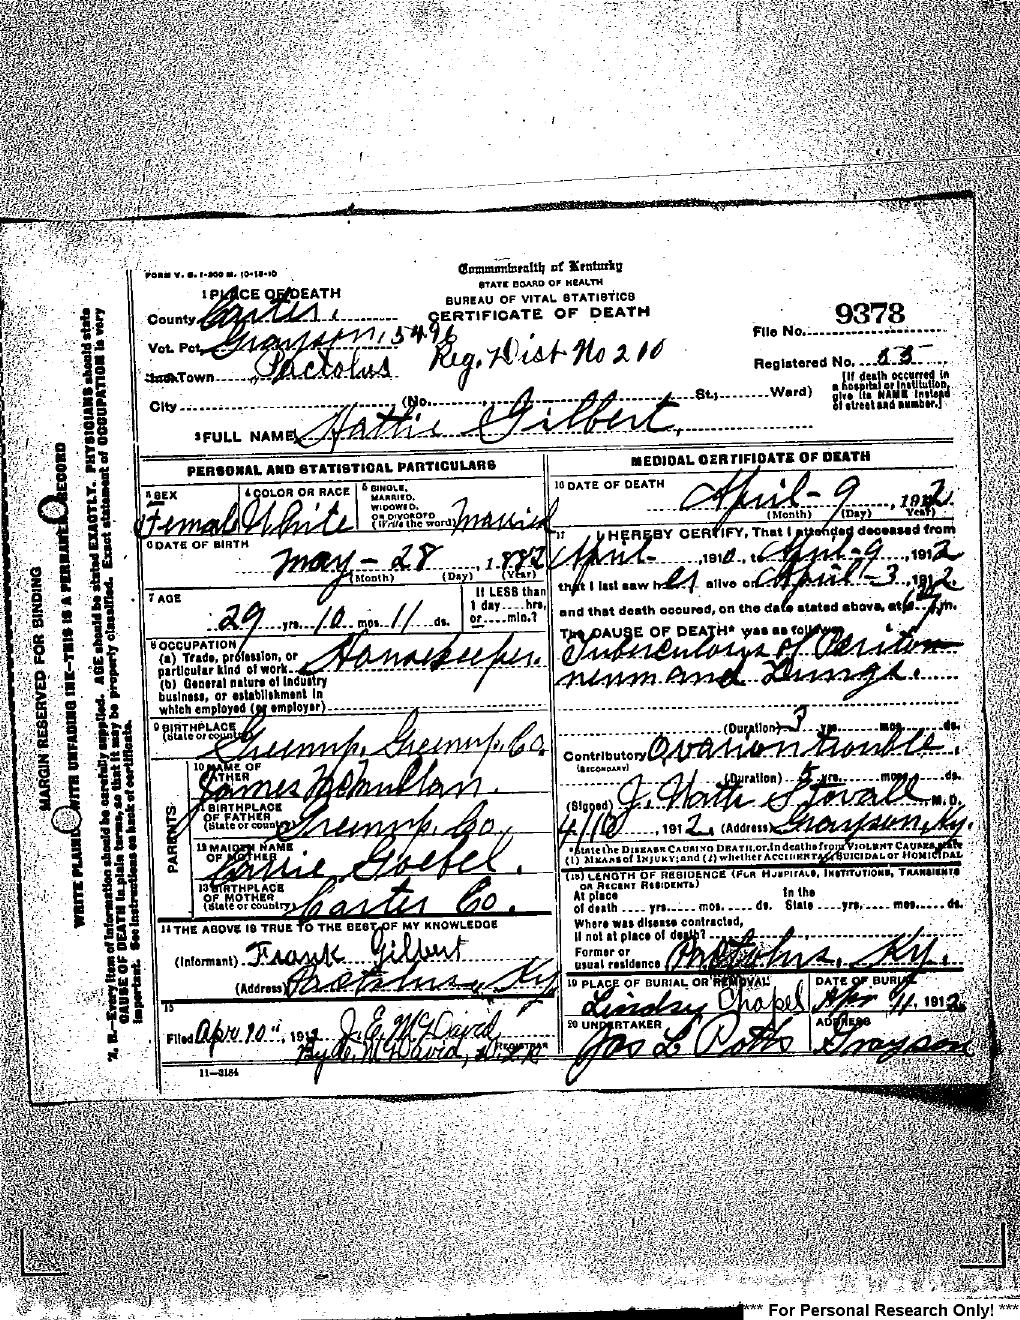 FORM V. S. 1-200 M. 10-18-10
Commonwealth of Kentucky
STATE BOARD OF HEALTH
BUREAU OF VITAL STATISTICS
CERTIFICATE OF DEATH
1 PLACE OF DEATH
County Carter.
Vot. Pct. Grayson, 5496
Town Pactolus
Reg. Dist No 210
File No. 9378
Registered No. 55
City (No. St., Ward)
[If death occurred in a hospital or institution, give its NAME instead of street and number.]
2 FULL NAME Hattie Gilbert,
PERSONAL AND STATISTICAL PARTICULARS
3 SEX
Female
4 COLOR OR RACE
White
5 SINGLE, MARRIED, WIDOWED, OR DIVORCED (Write the word) Married
6 DATE OF BIRTH
May - 28, 1882
(Month) (Day) (Year)
7 AGE
29 yrs. 10 mos. 11 ds.
If LESS than 1 day....hrs, or....min.?
8 OCCUPATION
(a) Trade, profession, or particular kind of work Housekeeper.
(b) General nature of industry business, or establishment in which employed (or employer)
9 BIRTHPLACE
(State or country) Greenup, Greenup, Co.
PARENTS
10 NAME OF FATHER
James McMullan.
11 BIRTHPLACE OF FATHER
(State or country) Greenup Co,
12 MAIDEN NAME OF MOTHER
Goebel.
13 BIRTHPLACE OF MOTHER
(State or country) Carter Co.
14 THE ABOVE IS TRUE TO THE BEST OF MY KNOWLEDGE
(Informant) Frank Gilbert
(Address) Pactolus, Ky
15
Filed Apr 10", 1912 J. E. McDavid
REGISTRAR
11-3184
MEDICAL CERTIFICATE OF DEATH
16 DATE OF DEATH
April - 9, 1912
(Month) (Day) Year)
17 I HEREBY CERTIFY, That I attended deceased from
April-, 1910, to April-9, 1912
that I last saw her alive on April-3, 1912.
and that death occured, on the date stated above, at m.
The CAUSE OF DEATH* was as follows:
Tuberculosys of Periton
neum and Lungs.
(Duration) 3 yrs. mos. ds.
Contributory Ovarion trouble.
(SECONDARY)
(Duration) 5 yrs. mos. ds.
(Signed) J. Watts Stovall M. D.
4/10, 1912. (Address) Grayson, Ky.
*State the DISEASE CAUSING DEATH, or, in deaths from VIOLENT CAUSES, state
(1) MEANS OF INJURY; and (2) whether ACCIDENTAL, SUICIDAL OR HOMICIDAL
(18) LENGTH OF RESIDENCE (FOR HOSPITALS, INSTITUTIONS, TRANSIENTS OR RECENT RESIDENTS)
At place of death .... yrs. .... mos. .... ds. In the State .... yrs. .... mos. .... ds.
Where was disease contracted,
if not at place of death?
Former or usual residence Pactolus, Ky.
19 PLACE OF BURIAL OR REMOVAL
Lindsy Chapel
DATE OF BURIAL
Apr 11, 1912
20 UNDERTAKER
Jas L Potts
ADDRESS
Grayson
MARGIN RESERVED FOR BINDING
WRITE PLAINLY WITH UNFADING INK—THIS IS A PERMANENT RECORD
N. B.—Every item of information should be carefully supplied. AGE should be stated EXACTLY. PHYSICIANS should state
CAUSE OF DEATH in plain terms, so that it may be properly classified. Exact statement of OCCUPATION is very
important. See instructions on back of certificate.
*** For Personal Research Only! ***